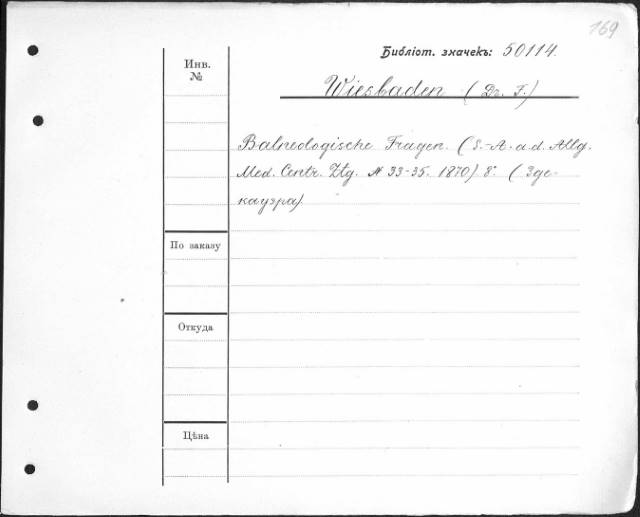 169
Библіот. значекъ: 50114.
Инв.
№
Wiesbaden (Dr. F.)
Balneologische Fragen. (S.-A. a. d. Allg.
Med. Centr. Ztg. № 33-35. 1870). 8°. (Зде-
кауэра).
По заказу
Откуда
Цѣна